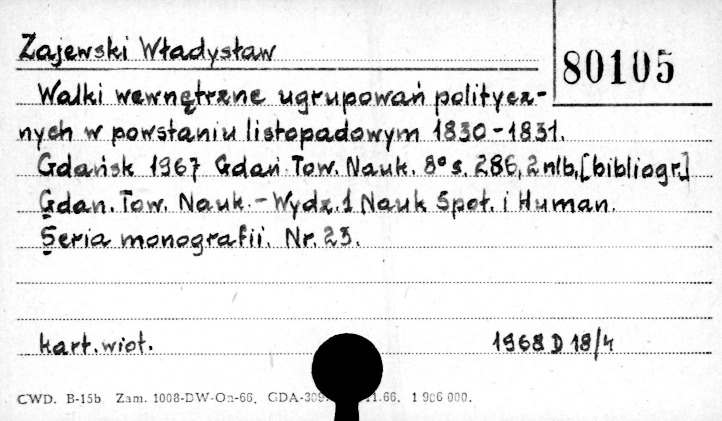 Zajewski Władysław
80105
Walki wewnętrzne ugrupowań politycz-
nych w powstaniu listopadowym 1830-1831.
Gdańsk 1967 Gdań. Tow. Nauk. 8° s. 286, 2 nlb, [bibliogr.]
Gdan. Tow. Nauk. - Wydz. 1 Nauk Społ. i Human.
Seria monografii. Nr. 23.
kart. wiot. 1968 D 18/4
CWD. B-15b Zam. 1008-DW-On-66. 1.66. 1 906 000.